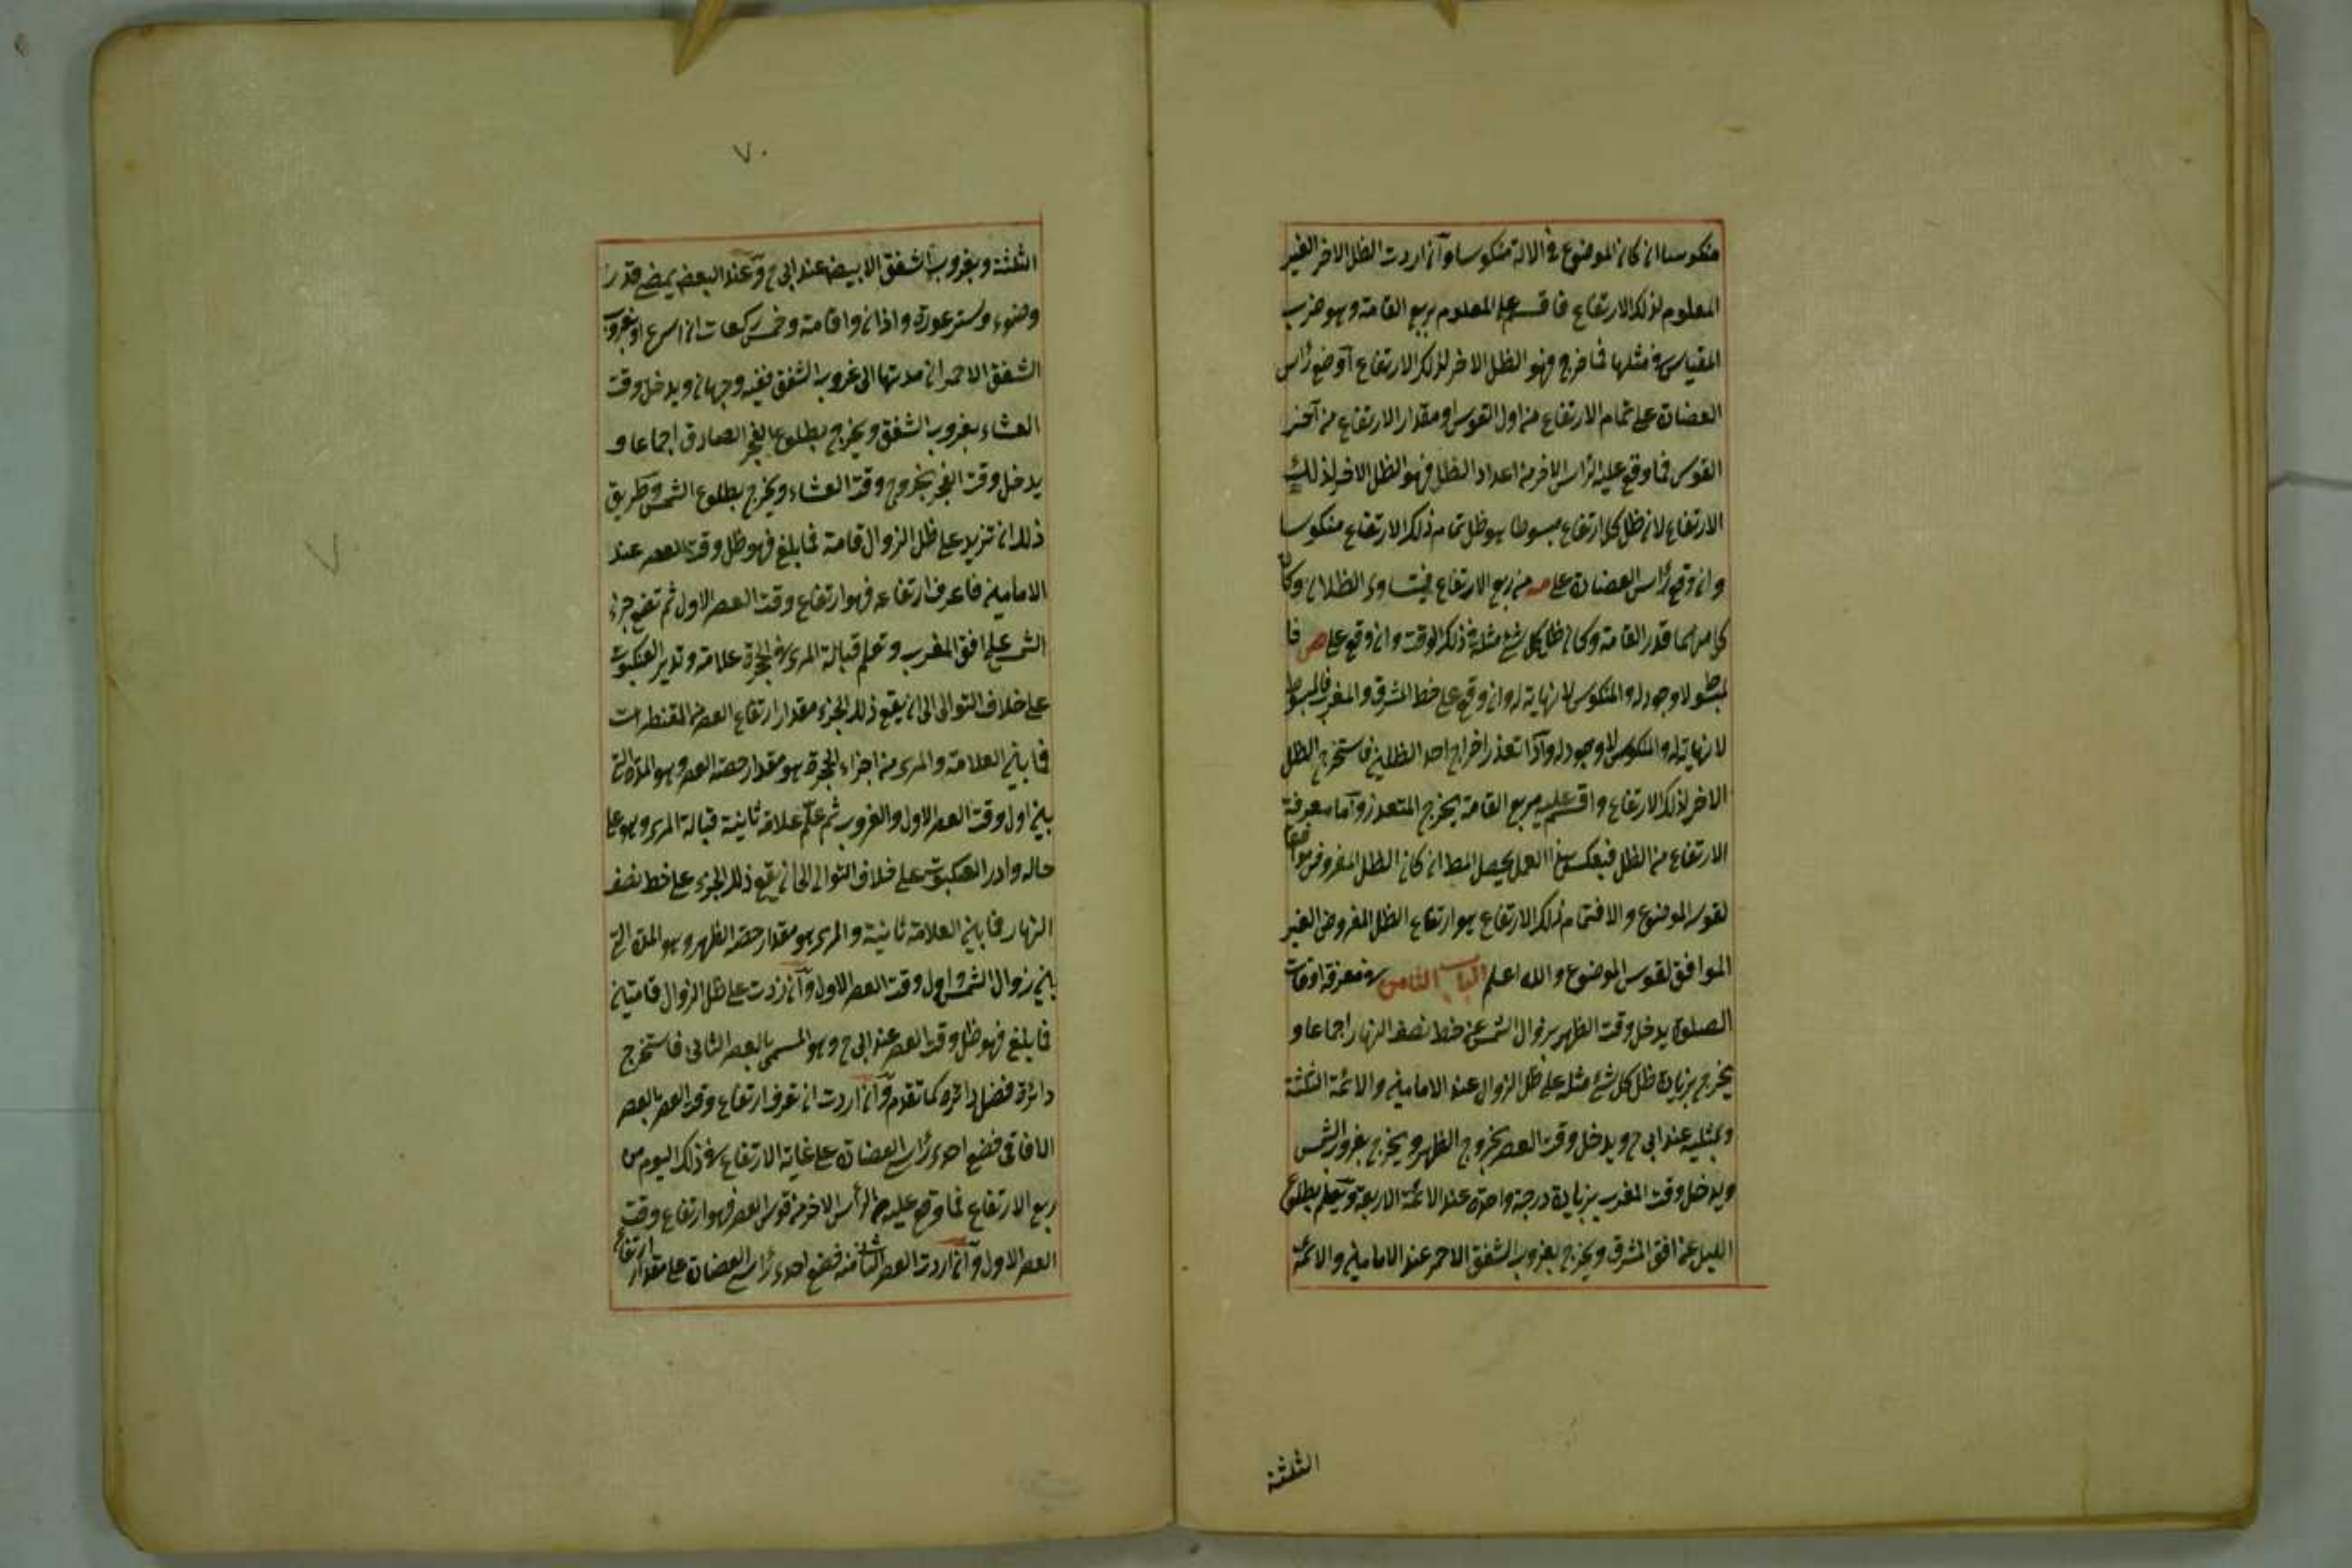 منكوسا ان كان الموضوع فى الالة منكوسا وان اردت الظل الاخر الغير
المعلوم لذلك الارتفاع فاقسم على المعلوم مربع القامة وهو ضرب
المقياس فى مثلها فما خرج فهو الظل الاخر لذلك الارتفاع او ضع رأس
العضادة على تمام الارتفاع من اول القوس او مقدار الارتفاع من آخر
القوس فما وقع عليه الرأس الاخر من اعداد الظل فهو الظل الاخر لذلك
الارتفاع لان ظل كل ارتفاع مبسوطا هو ظل تمام ذلك الارتفاع منكوسا
وان وقع رأس العضادة على مه من ربع الارتفاع فيتساوى الظلان وكان
كل منهما قدر القامة وكان ظل كل شئ مثله فى ذلك الوقت وان وقع على ص فا
لمبسوط لا وجود له والمنكوس لا نهاية له وان وقع على خط المشرق والمغرب فالمبسوط
لا نهاية له والمنكوس لا وجود له واذا تعذر اخراج احد الظلين فاستخرج الظل
الاخر لذلك الارتفاع واقسم عليه مربع القامة يخرج المتعذر واما معرفة
الارتفاع من الظل فبعكس هذا العمل يحصل المط ان كان الظل المفروض موافقا
لقوس الموضوع والا فتمام ذلك الارتفاع هو ارتفاع الظل المفروض الغير
الموافق لقوس الموضوع والله اعلم الباب الثامن فى معرفة اوقات
الصلوة يدخل وقت الظهر بزوال الشمس عن خط نصف النهار اجماعا و
يخرج بزيادة ظل كل شئ مثله على ظل الزوال عند الامامين والائمة الثلثة
وبمثليه عند ابى ح ويدخل وقت العصر بخروج الظهر ويخرج بغروب الشمس
ويدخل وقت المغرب بزيادة درجة واحدة عند الائمة الاربعة ويعلم بطلوع
الليل عن افق المشرق ويخرج بغروب الشفق الاحمر عند الامامين والائمة
الثلثة
٧٠
الثلثة وبغروب الشفق الابيض عند ابى ح وعند البعض بمضى قدر
وضوء وستر عورة واذان واقامة وخمس ركعات ان اسرع او بغروب
الشفق الاحمر ان مدتها الى غروب الشفق ففيه وجهان ويدخل وقت
العشاء بغروب الشفق ويخرج بطلوع الفجر الصادق اجماعا و
يدخل وقت الفجر بخروج وقت العشاء ويخرج بطلوع الشمس وطريق
ذلك ان تزيد على ظل الزوال قامة فما بلغ فهو ظل وقت العصر عند
الامامين فاعرف ارتفاعه فهو ارتفاع وقت العصر الاول ثم تضع جزء
الشمس على افق المغرب وتعلم قبالة المرى فى الحجرة علامة وتدير العنكبوت
على خلاف التوالى الى ان يقع ذلك الجزء مقدار ارتفاع العصر من المقنطرات
فما بين العلامة والمرى من اجزاء الحجرة هو مقدار حصة العصر وهو المدة التى
بين اول وقت العصر الاول والغروب ثم علم علامة ثانية قبالة المرى وهو على
حاله وادر العنكبوت على خلاف التوالى الى ان يقع ذلك الجزء على خط نصف
النهار فما بين العلامة ثانية والمرى هو مقدار حصة الظهر وهو المدة التى
بين زوال الشمس واول وقت العصر الاول وان زدت على ظل الزوال قامتين
فما بلغ فهو ظل وقت العصر عند ابى ح وهو المسمى بالعصر الثانى فاستخرج
دائرة فضل دائره كما تقدم وان اردت ان تعرف ارتفاع وقت العصر بالعصر
الافاقى فضع احدى رأس العضادة على غاية الارتفاع فى ذلك اليوم من
ربع الارتفاع فما وقع عليه الرأس الاخر من قوس العصر فهو ارتفاع وقت
العصر الاول وان اردت العصر الثانى منه فضع احدى رأس العضادة على مقدار ارتفاع